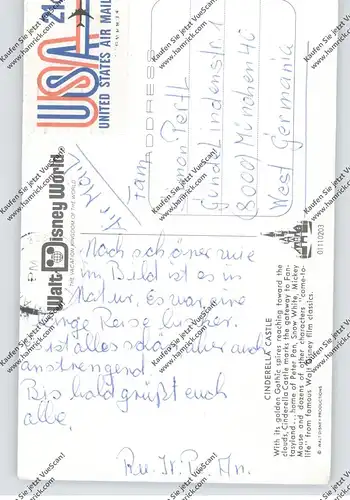 USA 21
UNITED STATES AIR MAIL
Air Mail
ADDRESS
Fam.
Simon Perth
Gundelindenstr. 1
8000 München 40
West Germania
Walt Disney World
THE VACATION KINGDOM OF THE WORLD
Noch schöner wie
im Bild ist es in
Natur, Es war eine
lange Reise hierher.
Ist alles schön aber auch
anstrengend
Bis bald grüßt euch
alle.
CINDERELLA CASTLE
With its golden Gothic spires reaching toward the
clouds, Cinderella Castle marks the gateway to Fan-
tasyland... home of Peter Pan, Snow White, Mickey
Mouse and dozens of other characters "come-to-
life" from famous Walt Disney film classics.
© WALT DISNEY PRODUCTIONS
01110203
Kaufen Sie jetzt VueScan!
www.hamrick.com